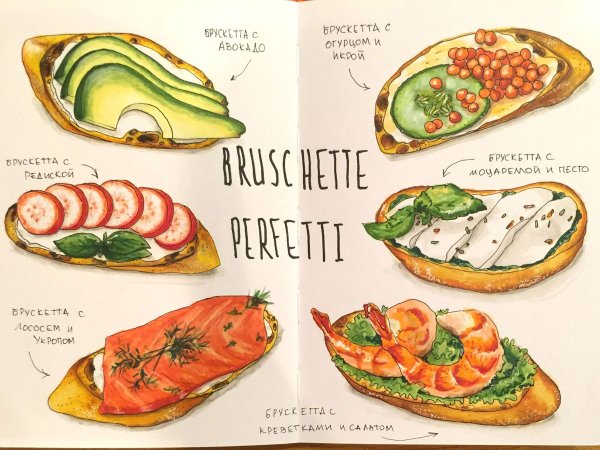 БРУСКЕТТА С
АВОКАДО
БРУСКЕТТА С
ОГУРЦОМ И
ИКРОЙ
BRUSCHETTE
PERFETTI
БРУСКЕТТА С
РЕДИСКОЙ
БРУСКЕТТА С
МОЦАРЕЛЛОЙ И ПЕСТО
БРУСКЕТТА С
ЛОСОСЕМ И
УКРОПОМ
БРУСКЕТТА С
КРЕВЕТКАМИ И САЛАТОМ